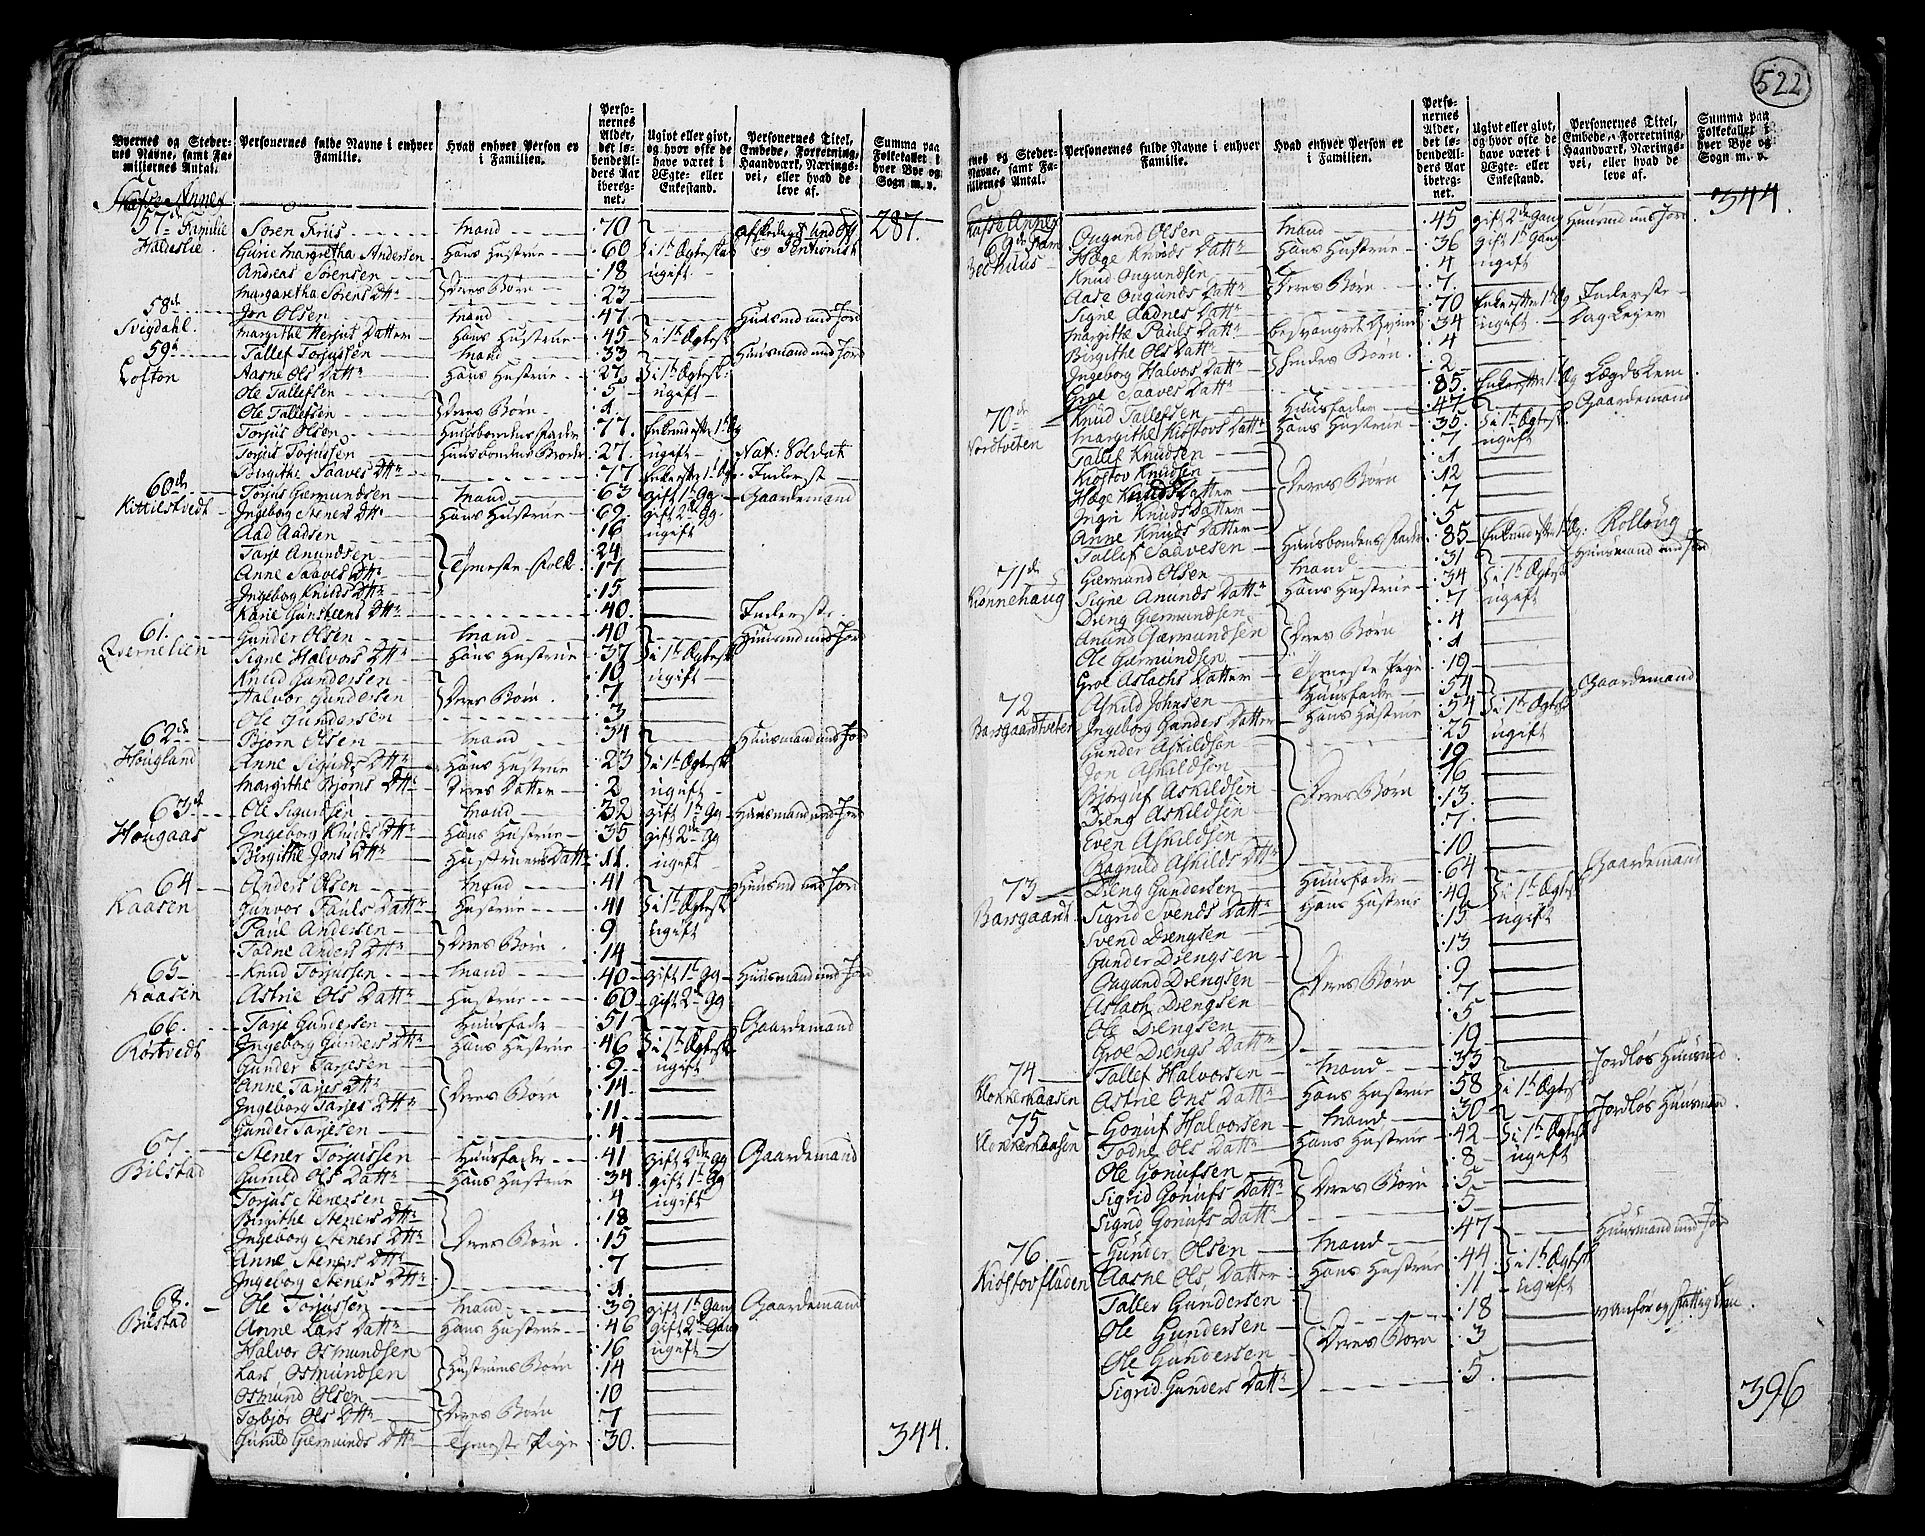 522
Byernes og Stedernes Navne, samt Familiernes Antal.
Personernes fulde Navne i enhver Familie.
Hvad enhver Person er i Familien.
Personernes Alder, det løbende Alders Aar iberegnet.
Ugivt eller givt, og hvor ofte de have været i Ægte- eller Enkestand.
Personernes Titel, Embede, Forretning, Haandværk, Næringsvei, eller hvad de leve af.
Summa paa Folketallet i hver Bye og Sogn m. v.
57de Familie Søren Friis Mand 70 287.
Haldeslie Gurie Margretha Andersen Hans Hustrue 60 i 1te Ægtesk og Pentionist
Andreas Sørensen 18 ugift
Margaretha Sørens Dttr Deres Børn 23
58de Jon Olsen Mand 47 Huusmd med Jord
Svigdahl Margithe Herjus Datter Hans Hustrue 45 i 1te Ægtesk
59de Tallef Torjussen Mand 33 Huusmand med Jord
Lofton Aasne Ols Dattr Hans Hustrue 27 i 1te Ægtesk:
Ole Tallefsen 5 ugift
Ole Tallefsen Deres Børn 1
Torjus Olsen Huusbondens Fader 77 Enkemd efter 1te Æg
Torjus Torjussen Huusbondens Broder 27 ugift Nat: Soldat
Birgithe Saaves Dttr 77 Enke efter 1te Æg Inderst
60de Torjus Giermundsen Mand 63 gift 1te Gg Gaardemand
Kittilstvedt Ingeborg Steners Dttr Hans Hustrue 69 gift 2de Gg
Aad Aadsen 16 ugift
Tarje Anundsen 24
Anne Saaves Dttr Tjeneste Folk 17
Ingeborg Knuds Dttr 15
Karie Gunsteens Dttr 40 Inderste
61. Gunder Olsen Mand 40 Huusmd med Jord
Qvernelien Signe Halvors Dttr Hans Hustrue 37 i 1te Ægtesk
Knud Gundersen 10 ugift
Halvor Gundersen Deres Børn 7
Ole Gundersen 3
62de Bjørn Olsen Mand 34 Huusmand med Jord
Hougland Anne Sigurds Dttr Hans Hustrue 23 i 1te Ægtesk
Margithe Bjørns Dttr Deres Datter 2 ugift
63de Ole Sigurdsen Mand 32 gift 1te Gg Huusmand med Jord
Hougaas Ingeborg Knuds Dttr Hans Hustrue 35 gift 2de Gg
Birgithe Jons Dttr Hustruens Dattr 11 ugift
64 Anders Olsen Mand 41 Huusmd med Jord
Kaasen Gunvor Pauls Dattr Hustrue 41 i 1te Ægtesk
Paul Andersen 9 ugift
Todne Anders Dttr Deres Børn 14
65 Knud Torjussen Mand 40 gift 1te Gg Huusmand med Jord
Kaasen Astrie Ols Dattr Hustrue 60 gift 2de Gg
66. Tarje Gundersen Huusfader 51 Gaardemand
Rørtvedt Ingeborg Gunders Dttr Hans Hustrue 46 i 1te Ægtesk
Gunder Tarjesen 9 ugift
Anne Tarjes Dttr Deres Børn 14
Ingeborg Tarjes Dttr 11
Gunder Tarjesen 4
67. Stener Torjussen Huusfader 41 gift 2de Gg Gaardemand
Bilstad Gunild Ols Dattr Hans Hustrue 34 gift 1te Gg
Torjus Stenersen 4 ugift
Birgithe Steners Dttr 18
Ingeborg Steners Dttr Deres Børn 15
Anne Steners Dttr 7
Ingeborg Steners Dttr 1
68. Ole Torjussen Mand 39 gift 1te Gang Gaardemand
Bilstad Anne Lars Dattr Hans Hustrue 46 gift 2de Gang
Halvor Osmundsen 16 ugift
Lars Osmundsen Hustruens Børn 14
Osmund Olsen 10
Torbjør Ols Dttr Deres Børn 7
Gunild Giermunds Dttr Tjeneste Pige 30. 344.
Byernes og Stedernes Navne, samt Familiernes Antal.
Personernes fulde Navne i enhver Familie.
Hvad enhver Person er i Familien.
Personernes Alder, det løbende Alders Aar iberegnet.
Ugivt eller givt, og hvor ofte de have været i Ægte- eller Enkestand.
Personernes Titel, Embede, Forretning, Haandværk, Næringsvei, eller hvad de leve af.
Summa paa Folketallet i hver Bye og Sogn m. v.
344.
69de Fam Ougund Olsen Mand 45 gift 2de Gang Huusmd med Jord
Hæge Knuds Dattr Hans Hustrue 36 gift 1te Gang
Knud Ougundsen 4 ugift
Aase Ougunds Dattr Deres Børn 7
Signe Aadnes Dattr 70 Enke efter 1te Æg Inderste
Margithe Pauls Dattr 34 ugift Dag Leyer
Birgithe Ols Dattr 4
Ingeborg Halvors Dattr hendes Børn 2
Groe Saaves Dattr 85 Enke efter 1te Æg Lægds Lem
70de Knud Tallefsen Huusfader 47 Gaardemand
Nordtveten Margithe Kiøstovs Dattr Hans Hustrue 35 i 1te Ægtesk
Tallef Knudsen 7 ugift
Kiøstov Knudsen 1
Hæge Knuds Datter Deres Børn 12
Ingri Knuds Datter 7
Anne Knuds Datter 5
Tallef Saavesen Huusbondens Fader 85 Enkemd efter 1te Æg:
71de Giermund Olsen Mand 31 Huusmand med Jord
Kiønnehaug Signe Anunds Dattr Hans Hustrue 34 i 1te Ægtesk
Dreng Giermundsen 7 ugift
Anund Giermundsen Deres Børn 4
Ole Giermundsen 1
Groe Aslachs Datter Tjeneste Pige 19
72 Askild Johnsen Huusfader 54 Gaardemand
Barsgaardtveten Ingeborg Gunders Datter Hans Hustrue 54 i 1te Ægtesk
Gunder Askildsen 25 ugift
Jon Askildsen 19
Bjørguf Askildsen 16
Dreng Askildsen Deres Børn 13
Even Askildsen 7
Ragnild Askilds Dttr 10
73 Dreng Gundersen Huusfader 64 Gaardemand
Barsgaardt Sigrid Svends Dattr Hans Hustrue 49 i 1te Ægtesk
Svend Drengsen 15 ugift
Gunder Drengsen 13
Ougund Drengsen Deres Børn 9
Aslach Drengsen 7
Ole Drengsen 5
Groe Drengs Dattr 19
74 Tallef Halvorsen Mand 33 Jordløs Huusmd
Klokkerhaasen Astrie Ons Dattr Hans Hustrue 58 i 1te Ægtesk
75 Gonuf Halvorsen Mand 30 Jordløs Huusmand
Todne Ols Dattr Hans Hustrue 42 i 1te Ægtesk
Ole Gonufsen 8 ugift
Sigrid Gonufs Dattr Deres Børn 5
Sigrid Gonufs Dattr 5
76. Gunder Olsen Mand 47 Huusmand med Jord
Kiøstovfladen Aasne Ols Datter Hans Hustrue 44 i 1te Ægtesk
Taller Gundersen 11 ugift
Ole Gundersen 18 vanfør og fattig Lem
Ole Gundersen Deres Børn 3
Sigrid Gunders Dattr 5
396